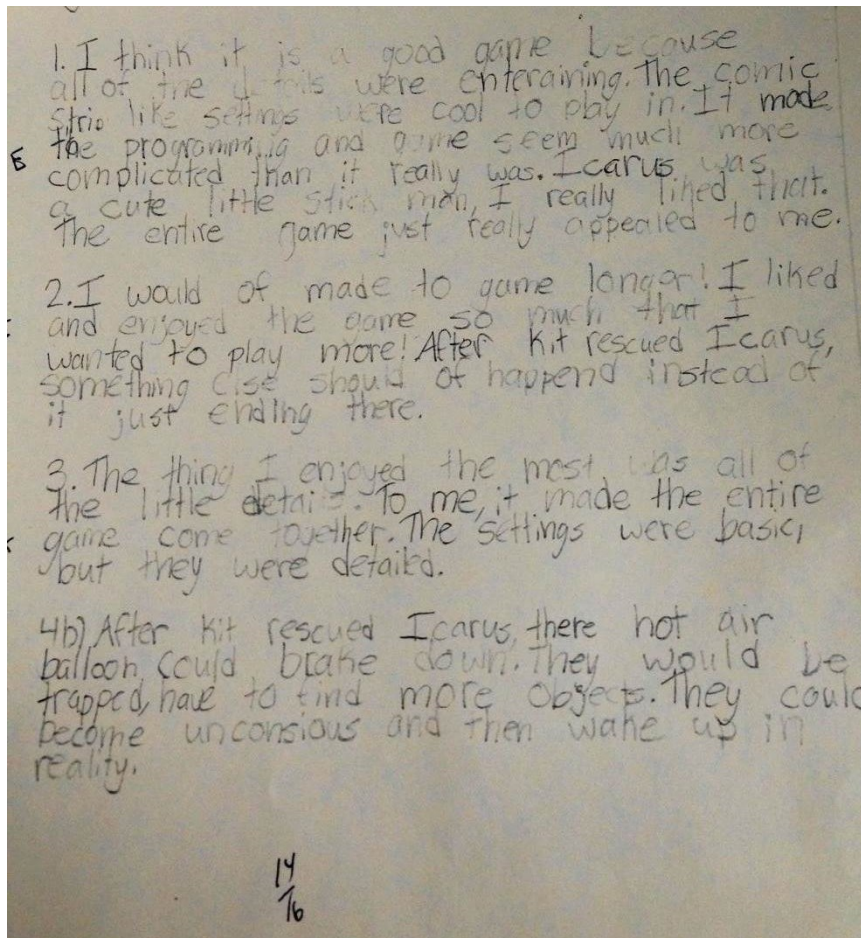 1. I think it is a good game because
all of the details were enteraining. The comic
strip like settings were cool to play in. It made
the programming and game seem much more
complicated than it really was. Icarus was
a cute little stick man, I really liked that.
The entire game just really appealed to me.
2. I would of made to game longer! I liked
and enjoyed the game so much that I
wanted to play more! After Kit rescued Icarus,
something else should of happend instead of
it just ending there.
3. The thing I enjoyed the most was all of
the little details. To me, it made the entire
game come together. The settings were basic,
but they were detailed.
4b) After Kit rescued Icarus, there hot air
balloon could brake down. They would be
trapped, have to find more objects. They could
become unconsious and then wake up in
reality.
14
16